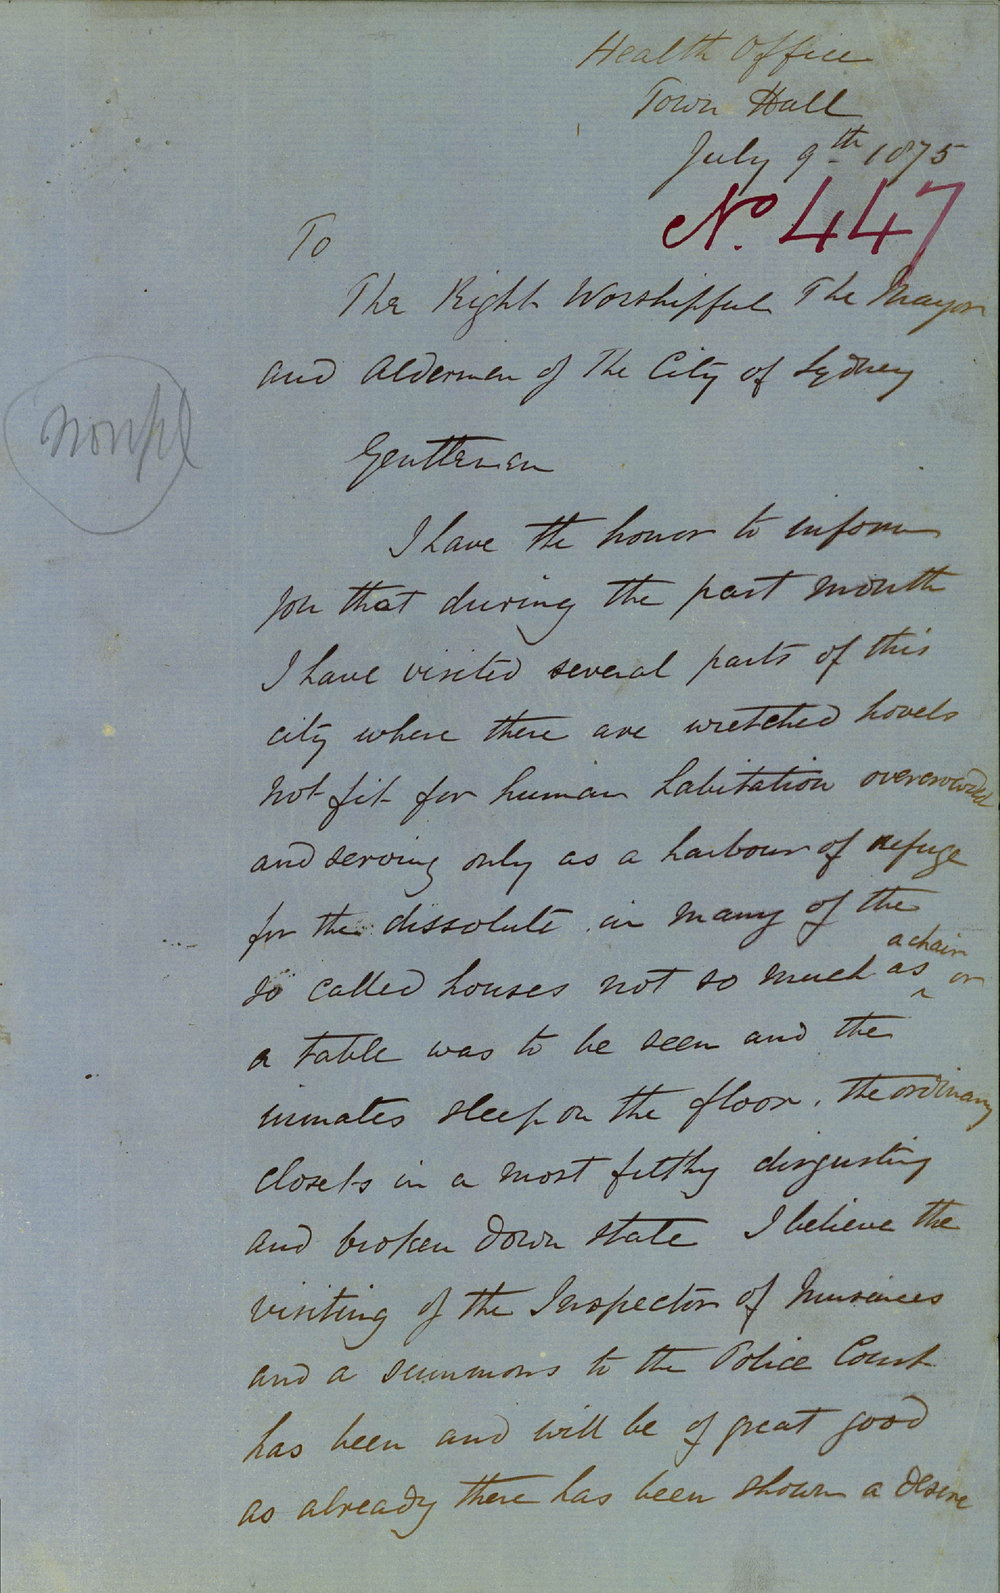 Health Office
Town Hall
July 9th 1875
No. 447
To
The Right Worshipful The Mayor
and Aldermen of The City of Sydney
Gentlemen
I have the honor to inform
you that during the past month
I have visited several parts of this
city where there are wretched hovels
not fit for human habitation overcrowded
and serving only as a harbour of refuge
for the dissolute in many of the
so called houses not so much as a chair or
a table was to be seen and the
inmates sleep on the floor. the ordinary
closets in a most filthy disgusting
and broken down state I believe the
visiting of the Inspector of Nusiances
and a summons to the Police Court
has been and will be of great good
as already there has been shown a desire